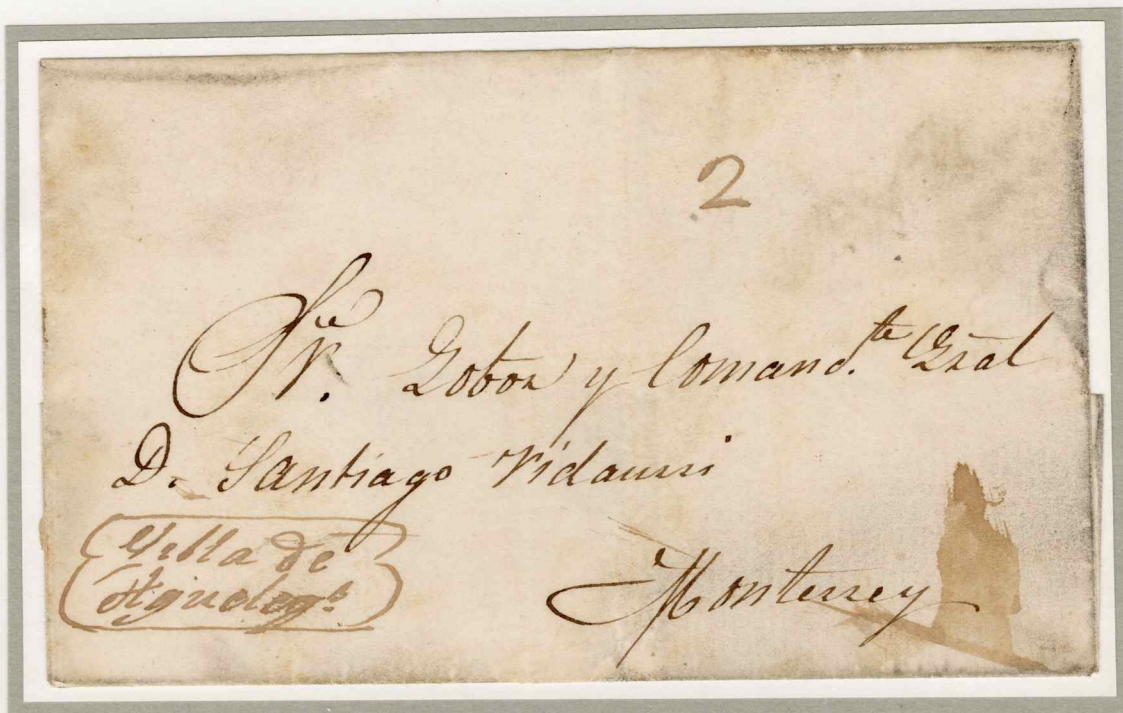 2
Sr. Gobor y Comand.te Gral
D. Santiago Vidaurri
Villa de
Monterrey